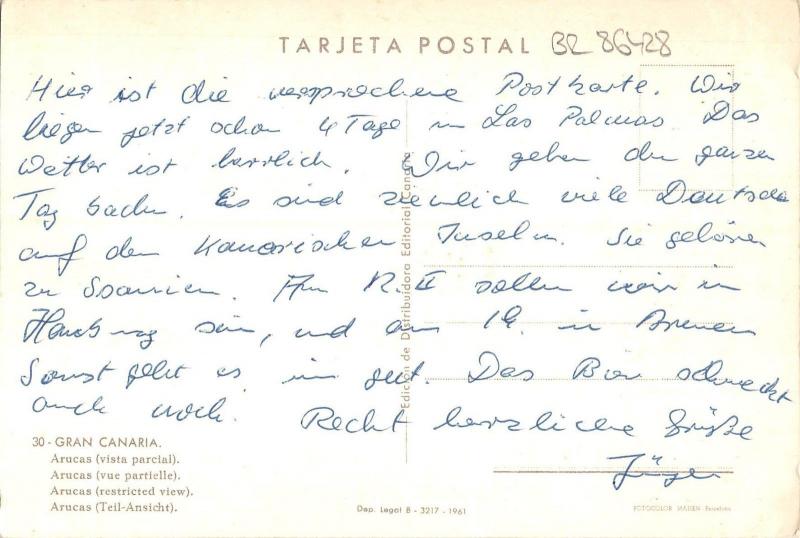 TARJETA POSTAL BR 86428
Hier ist die versprochene Postkarte. Wir
liegen jetzt schon 4 Tage in Las Palmas Das
Wetter ist herrlich. Wir gehen den ganzen
Tag baden. Es sind ziemlich viele Deutsche
auf den Kanarischen Inseln. Sie gehören
zu Spanien. Am II sollen wir in
Hamburg sein, und am in Bremen
Sonst geht es gut. Das Bier schmeckt
auch noch. Recht herzliche Grüße
Jürgen
Edición de Distribuidora Editorial Canaria
30 - GRAN CANARIA.
Arucas (vista parcial).
Arucas (vue partielle).
Arucas (restricted view).
Arucas (Teil-Ansicht).
Dep. Legal B - 3217 - 1961
FOTOCOLOR Barcelona